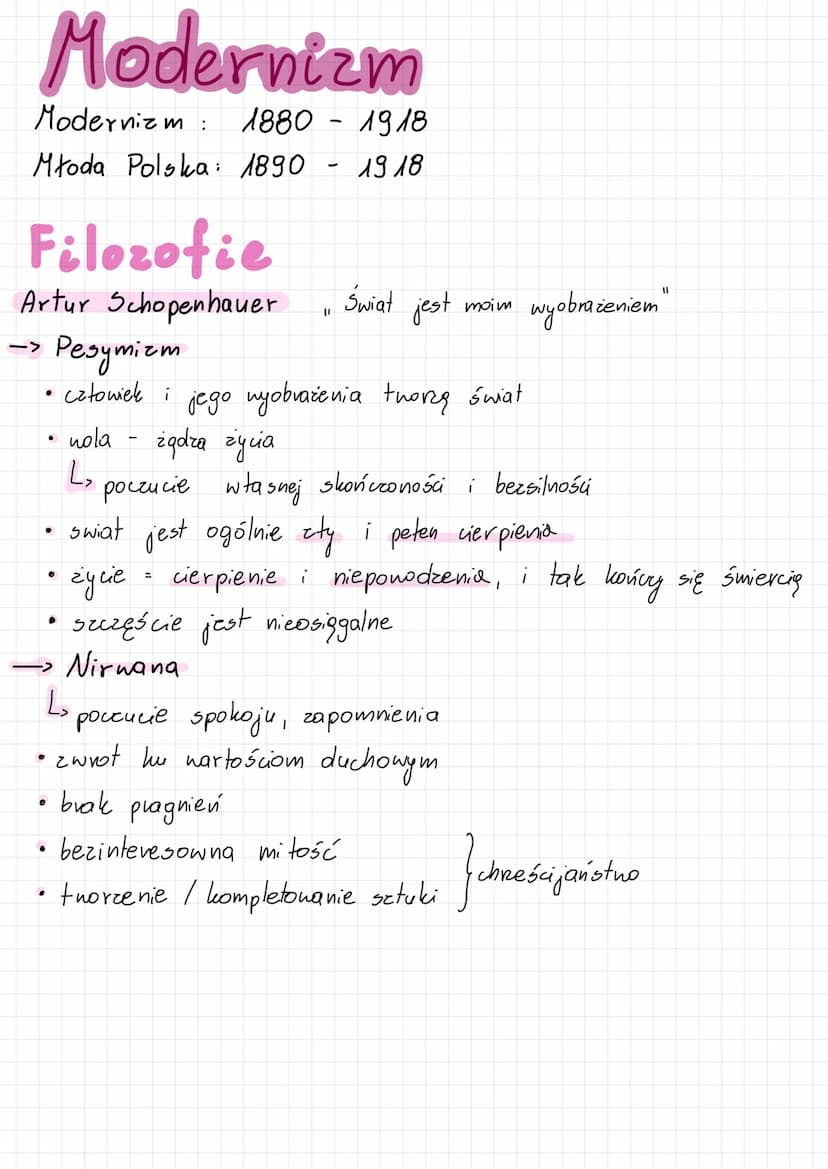 Modernizm
Modernizm : 1880 - 1918
Młoda Polska: 1890 - 1918
Filozofie
Artur Schopenhauer „Świat jest moim wyobrażeniem"
-> Pesymizm
• człowiek i jego wyobrażenia tworzą świat
• wola - żądza życia
↳ poczucie własnej skończoności i bezsilności
• swiat jest ogólnie zły i pełen cierpienia
• życie = cierpienie i niepowodzenia, i tak kończy się śmiercią
• szczęście jest nieosiągalne
-> Nirwana
↳ poczucie spokoju, zapomnienia
• zwrot ku wartościom duchowym
• brak pragnień
• bezinteresowna miłość
• tworzenie / kompletowanie sztuki } chreścijaństwo